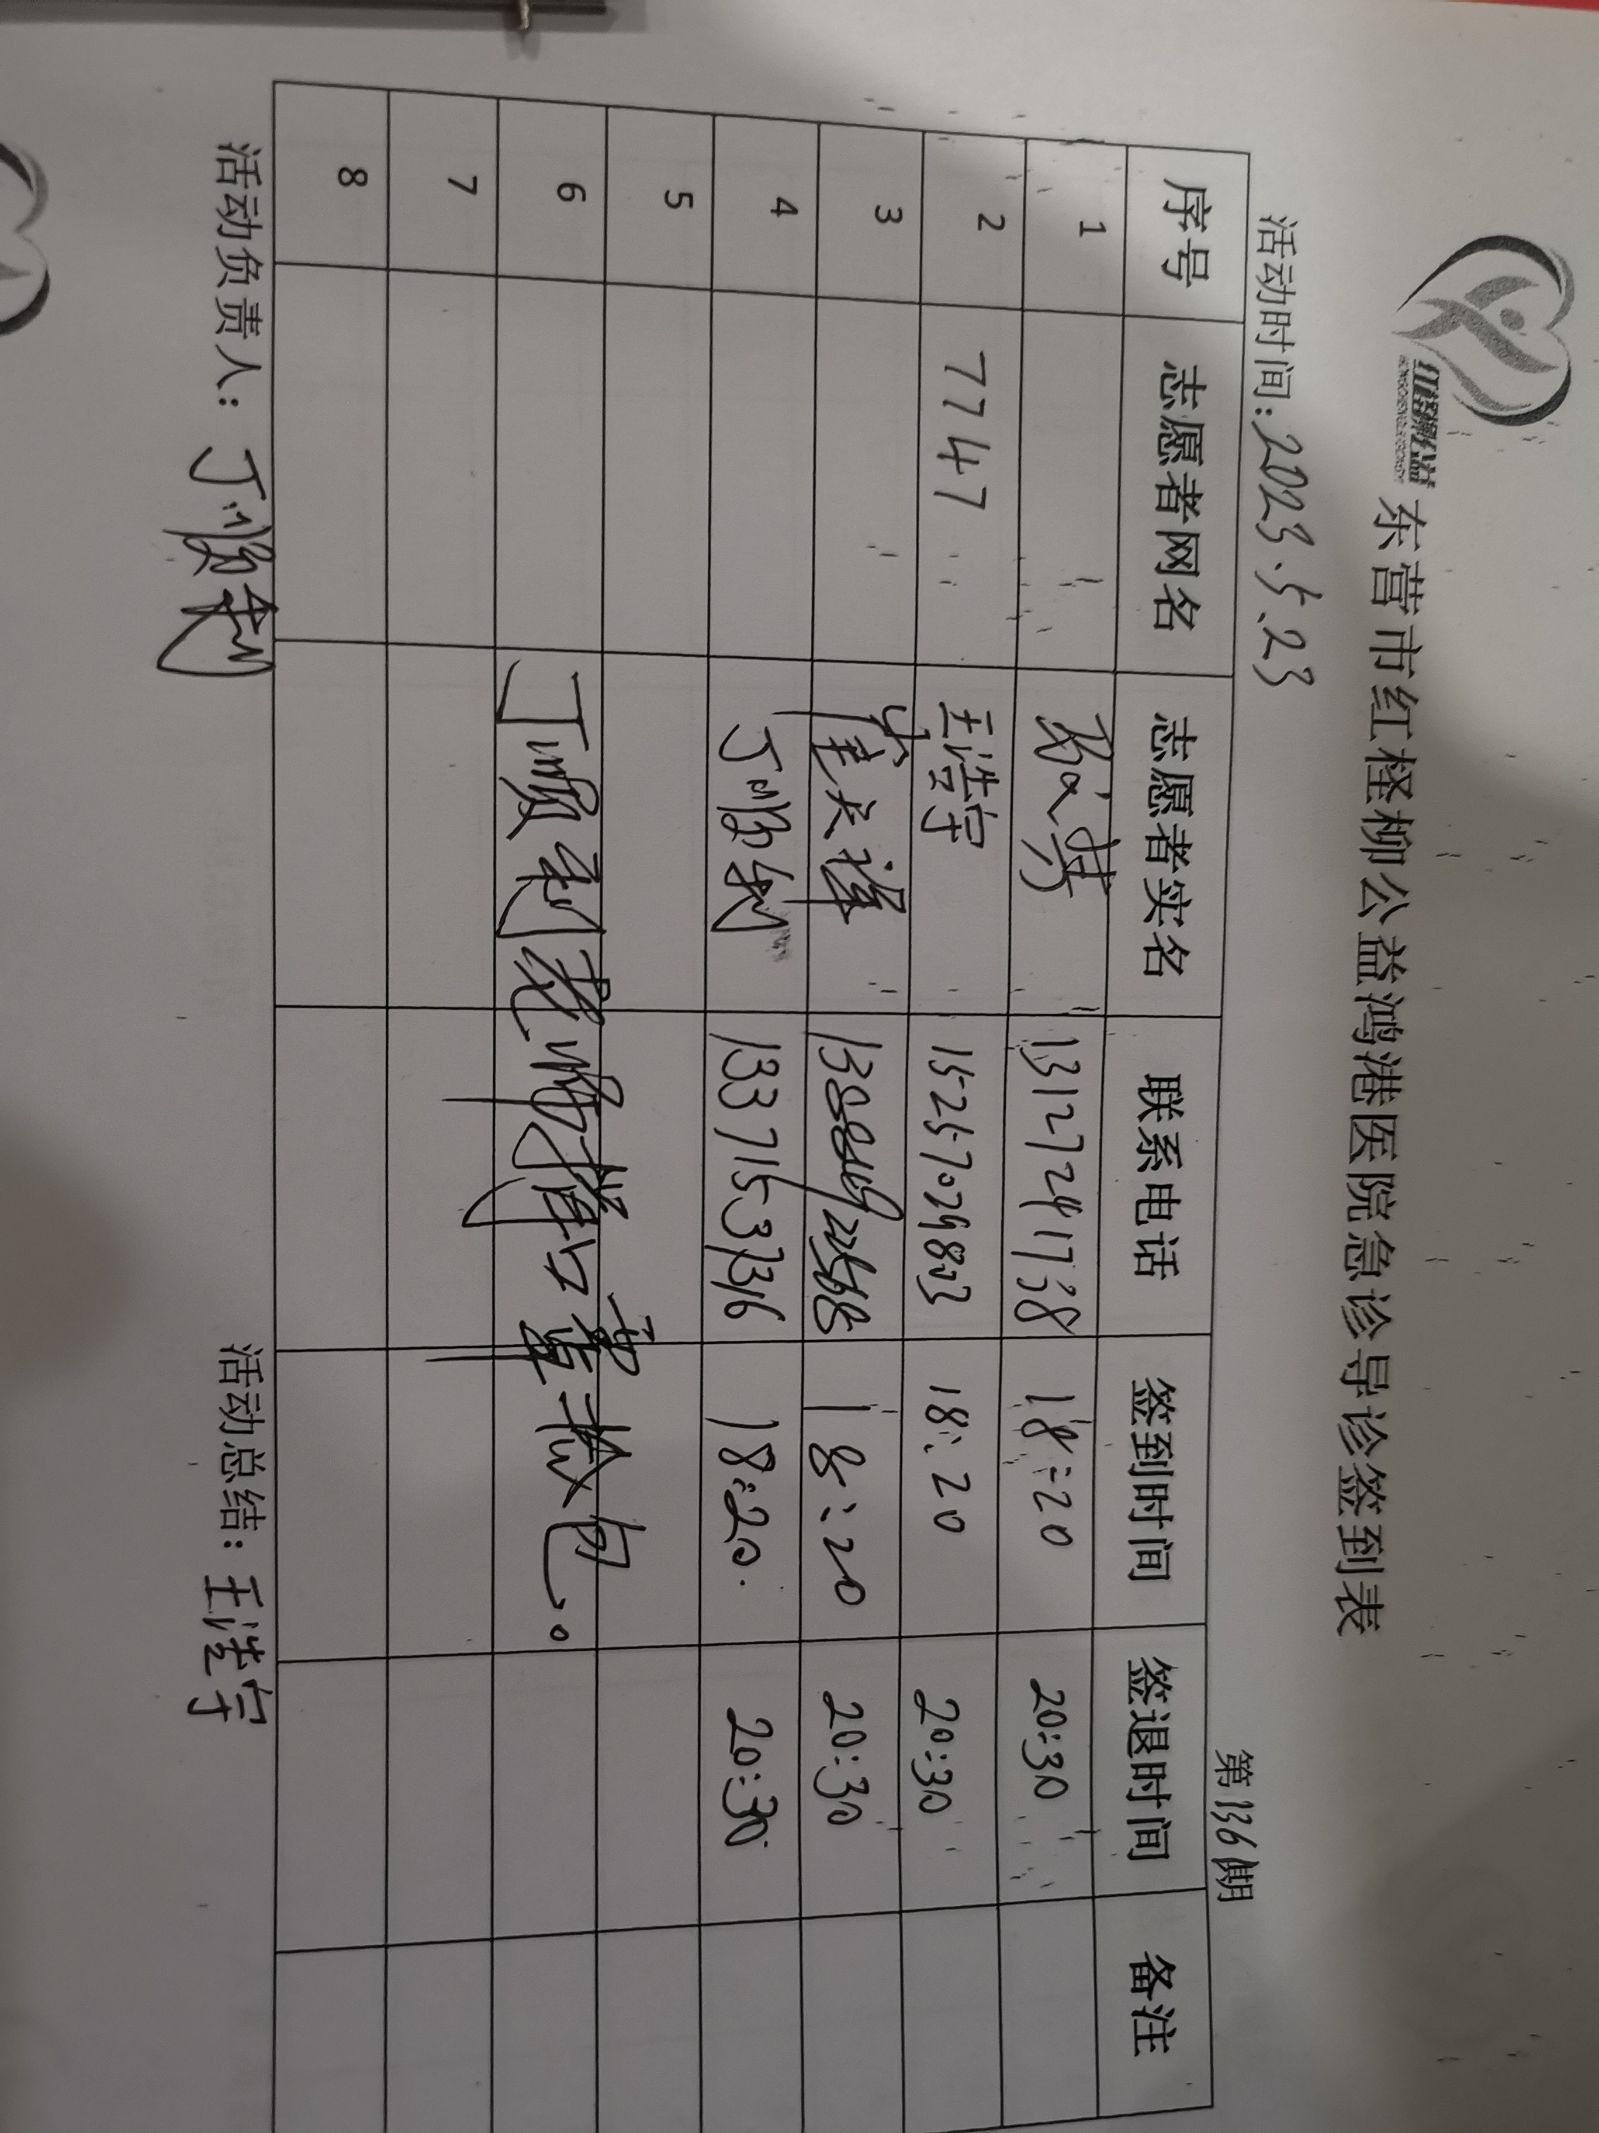 红柽柳公益
东营市红柽柳公益鸿港医院急诊导诊签到表
活动时间：2023.5.23 第136期
序号 志愿者网名 志愿者实名 联系电话 签到时间 签退时间 备注
1 13127241738 18:20 20:30
2 7747 王浩宇 15257029803 18:20 20:30
3 18:20 20:30
4 丁顺利 13371533316 18:20. 20:30
5
6 丁顺利
7
8
活动负责人：丁顺利 活动总结：王浩宇